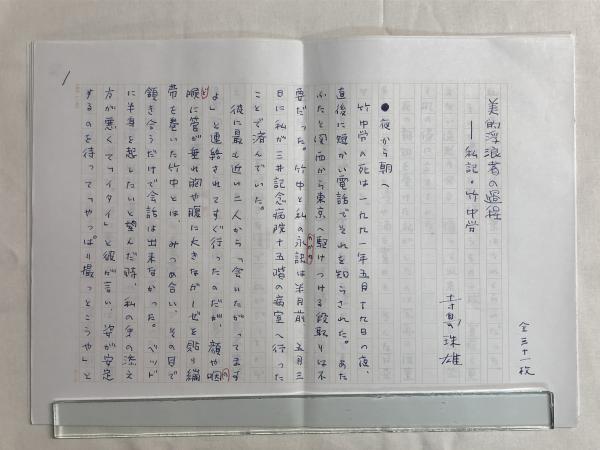 全三十一枚
美的浮浪者の過程
──私記・竹中労
寺島珠雄
●夜から朝へ
竹中労の死は一九九一年五月十九日の夜、
直後に短かい電話でそれを知らされた。あた
ふたと関西から東京へ駆けつける段取りは不
要だった。竹中と私の永訣は半月前、五月三
日に私が三井記念病院十五階の病室へ行った
ことで済んでいた。
彼に最も近い二人から「会いたがってます
よ」と連絡されてすぐ行ったのだが、顔や咽
喉に管が垂れ胸や腹に大きなガーゼを貼り繃
帯を巻いた竹中とは、みつめ合い、その目で
頷き合うだけで会話は出来なかった。ベッド
に半身を起したいと望んだ時、私の手の添え
方が悪くて「イタイ」と彼が言い、姿が安定
するのを待って「やっぱり撮っとこうや」と
1